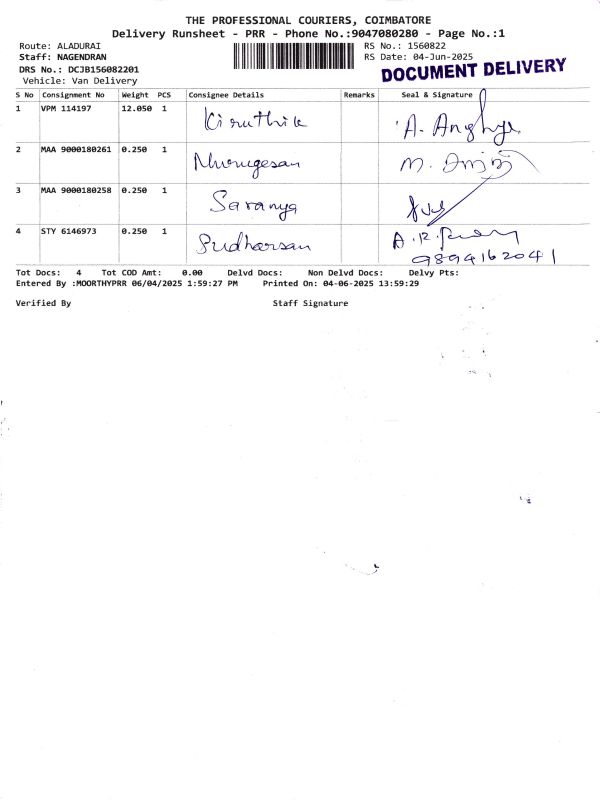 THE PROFESSIONAL COURIERS, COIMBATORE
Delivery Runsheet - PRR - Phone No.:9047080280 - Page No.:1
Route: ALADURAI
Staff: NAGENDRAN
DRS No.: DCJB156082201
Vehicle: Van Delivery
RS No.: 1560822
RS Date: 04-Jun-2025
DOCUMENT DELIVERY
S No Consignment No Weight PCS Consignee Details Remarks Seal & Signature
1 VPM 114197 12.050 1 Kiruthik
2 MAA 9000180261 0.250 1 Murugesan
3 MAA 9000180258 0.250 1 Saranya
4 STY 6146973 0.250 1 Sudharsan
9894162041
Tot Docs: 4 Tot COD Amt: 0.00 Delvd Docs: Non Delvd Docs: Delvy Pts:
Entered By :MOORTHYPRR 06/04/2025 1:59:27 PM Printed On: 04-06-2025 13:59:29
Verified By Staff Signature